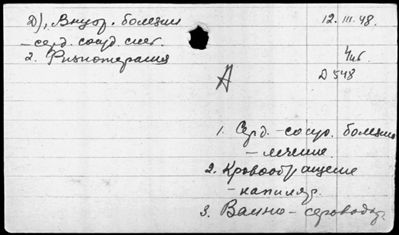 Д), Внутр. болезни
12.III.48.
— серд. сосуд. сист.
2. Физиотерапия
Д 548
А
1. Серд. - сосуд. болезни
— лечение.
2. Кровообращение
— капилляр.
3. Ванно - сероводор.